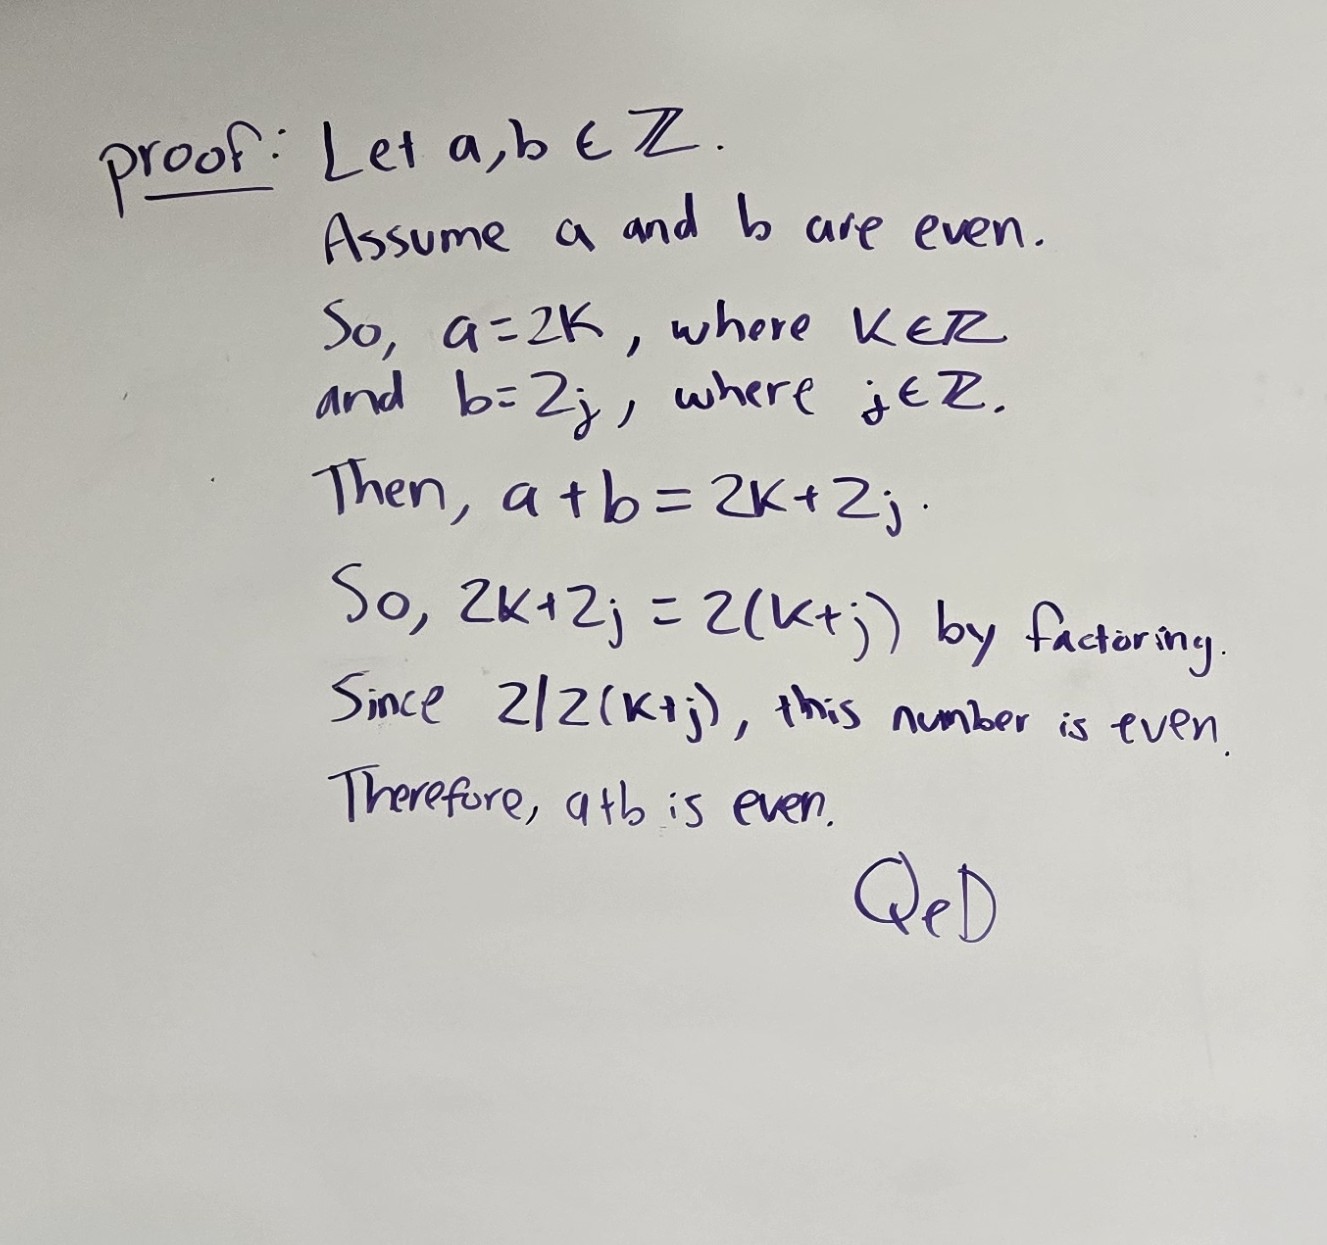 proof: Let a,b ∈ ℤ.
Assume a and b are even.
So, a=2K, where K∈ℤ
and b=2j, where j∈ℤ.
Then, a+b=2K+2j.
So, 2K+2j = 2(K+j) by factoring.
Since 2|2(K+j), this number is even.
Therefore, a+b is even.
QeD